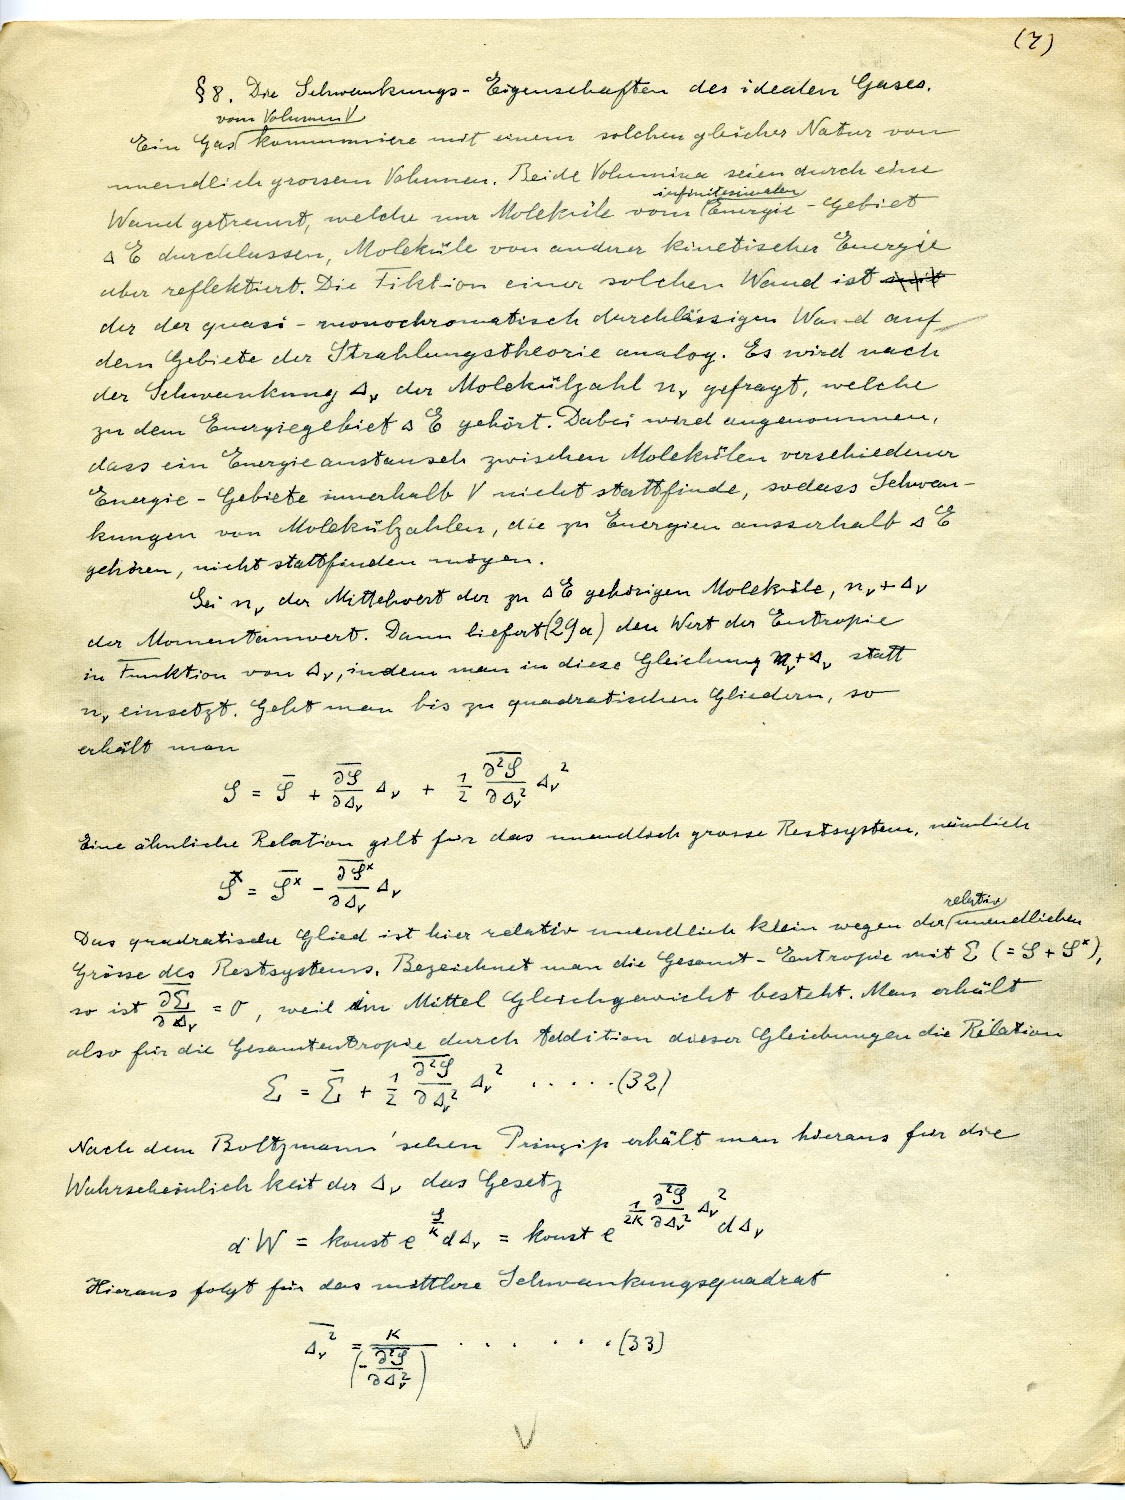 (7)
§ 8. Die Schwankungs-Eigenschaften des idealen Gases.
vom Volumen V
Ein Gas kommuniziere mit einem solchen gleicher Natur von
unendlich grossem Volumen. Beide Volumina seien durch eine
infinitesimalen
Wand getrennt, welche nur Moleküle vom Energie-Gebiet
Δ E durchlassen, Moleküle von anderer kinetischer Energie
aber reflektiert. Die Fiktion einer solchen Wand ist
der der quasi-monochromatisch durchlässigen Wand auf
dem Gebiete der Strahlungstheorie analog. Es wird nach
der Schwankung Δν der Molekülzahl nν gefragt, welche
zu dem Energiegebiet Δ E gehört. Dabei wird angenommen,
dass ein Energieaustausch zwischen Molekülen verschiedener
Energie-Gebiete innerhalb V nicht stattfinde, sodass Schwan-
kungen von Molekülzahlen, die zu Energien ausserhalb Δ E
gehören, nicht stattfinden mögen.
Sei nν der Mittelwert der zu ΔE gehörigen Moleküle, nν + Δν
der Momentanwert. Dann liefert (29a) den Wert der Entropie
in Funktion von Δν, indem man in diese Gleichung nν + Δν statt
nν einsetzt. Geht man bis zu quadratischen Gliedern, so
erhält man
S = S̄ + \overline{∂S/∂Δν} Δν + 1/2 \overline{∂²S/∂Δν²} Δν²
Eine ähnliche Relation gilt für das unendlich grosse Restsystem, nämlich
Sˣ = S̄ˣ − \overline{∂Sˣ/∂Δν} Δν
relativ
Das quadratische Glied ist hier relativ unendlich klein wegen der unendlichen
Grösse des Restsystems. Bezeichnet man die Gesamt-Entropie mit Σ (= S + Sˣ),
so ist \overline{∂Σ/∂Δν} = 0, weil im Mittel Gleichgewicht besteht. Man erhält
also für die Gesamtentropie durch Addition dieser Gleichungen die Relation
Σ = Σ̄ + 1/2 \overline{∂²S/∂Δν²} Δν² . . . . . (32)
Nach dem Boltzmann'schen Prinzip erhält man hieraus für die
Wahrscheinlichkeit der Δν das Gesetz
dW = konst e^{S/κ} dΔν = konst e^{1/2κ \overline{∂²S/∂Δν²} Δν²} dΔν
Hieraus folgt für das mittlere Schwankungsquadrat
\overline{Δν²} = κ/(−\overline{∂²S/∂Δν²}) . . . . . . . (33)
V